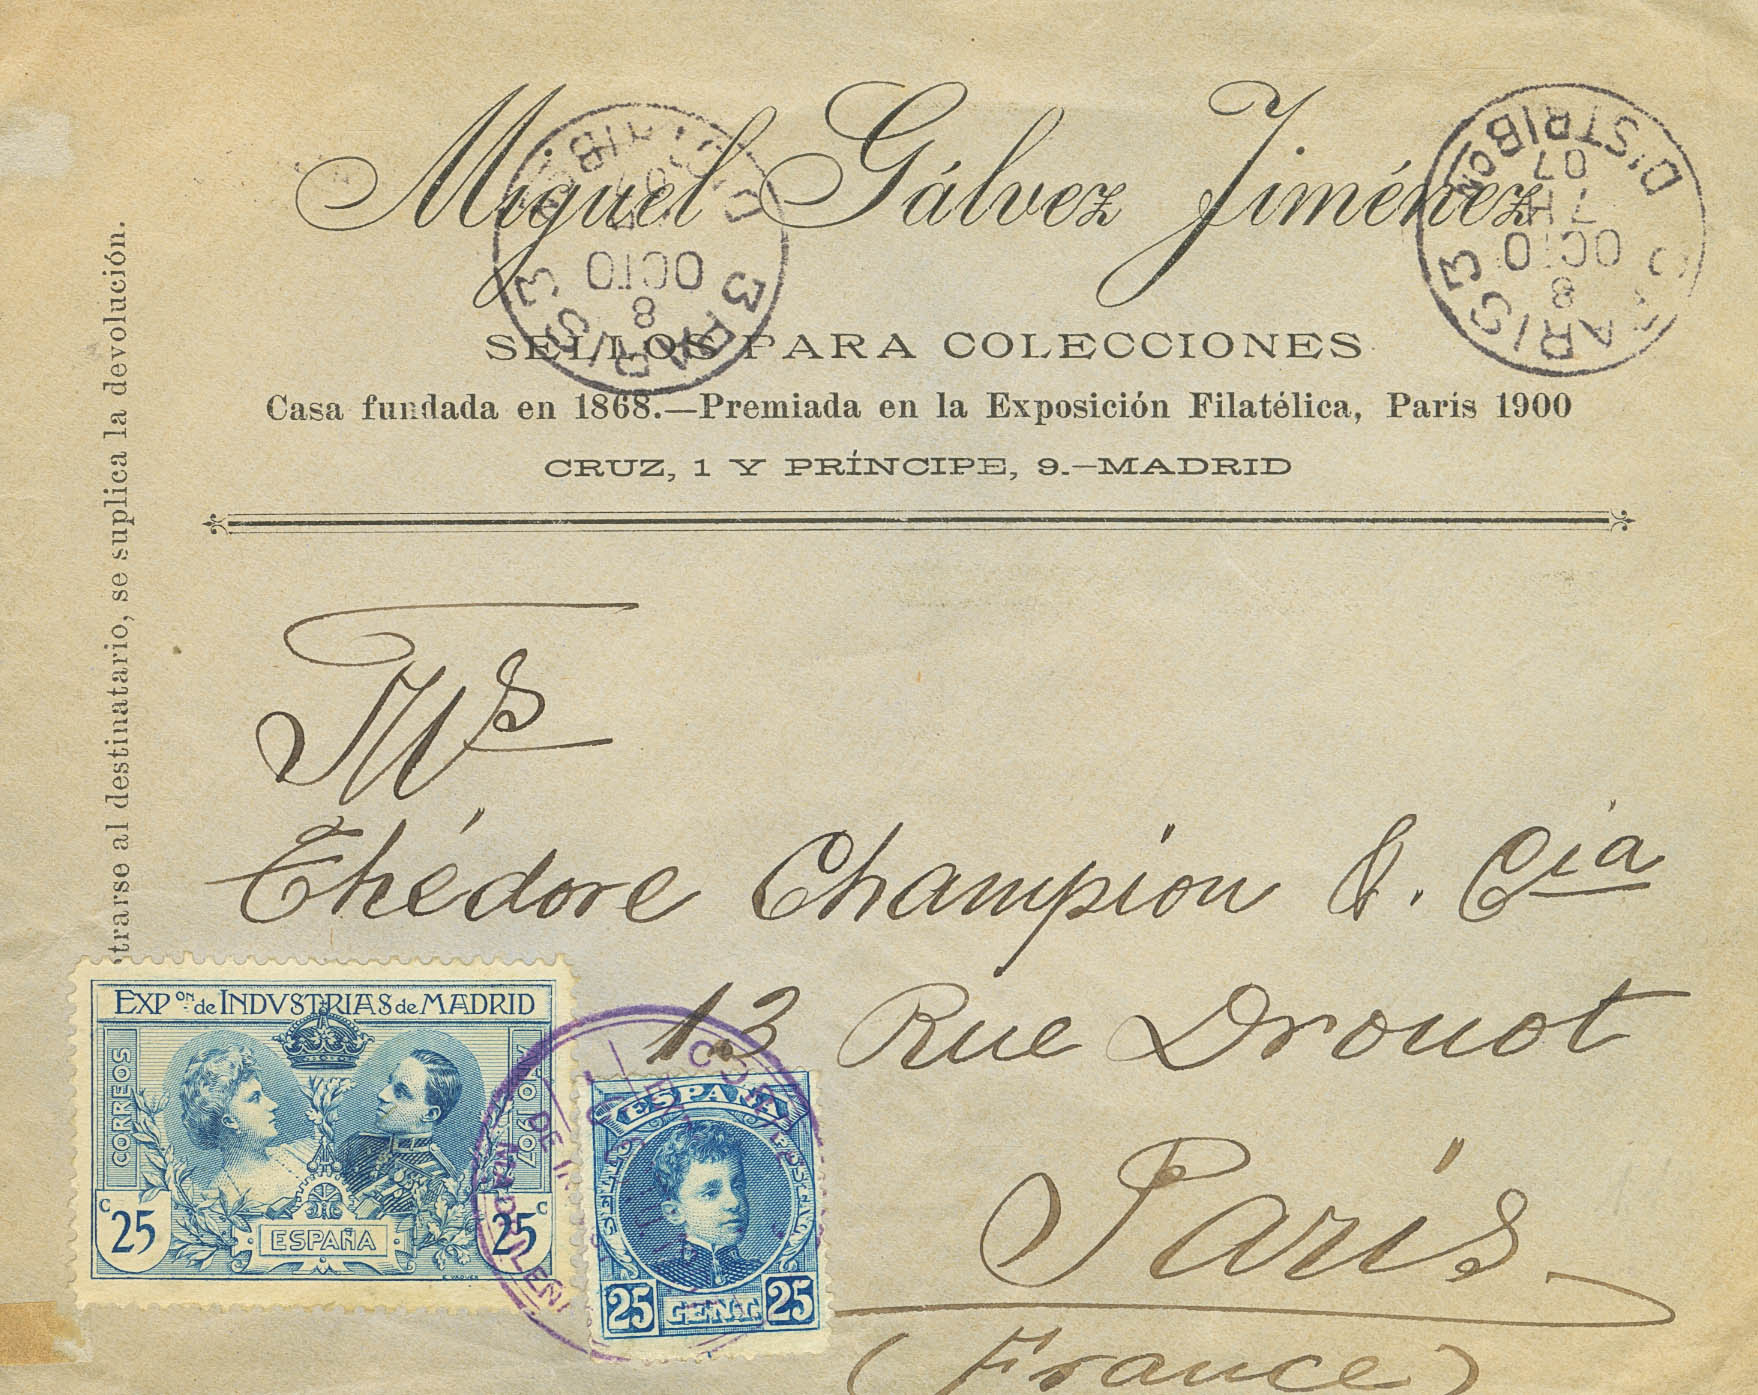 Miguel Gálvez Jiménez
SELLOS PARA COLECCIONES
Casa fundada en 1868.—Premiada en la Exposición Filatélica, París 1900
CRUZ, 1 Y PRÍNCIPE, 9.—MADRID
trarse al destinatario, se suplica la devolución.
PARIS 3
8
OCTO
3
PARIS 3
8
OCTO
7H
07
DISTRIBON
Ms
Thédore Champion &. Cia
13 Rue Drouot
Paris
(France)
EXPON. de INDVSTRIAS de MADRID
CORREOS
AÑO 1907
C 25
25 C
ESPAÑA
ESPAÑA
25 CENT. 25
MADRILEÑ